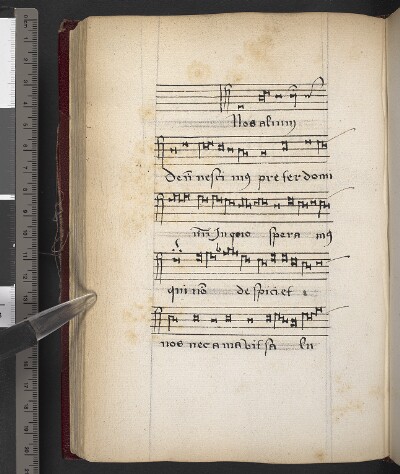 Nos alium
deū nesci mꝰ preter domi
nū In quo spera mꝰ
qui nō despiciet
nos nec amabit sa lu